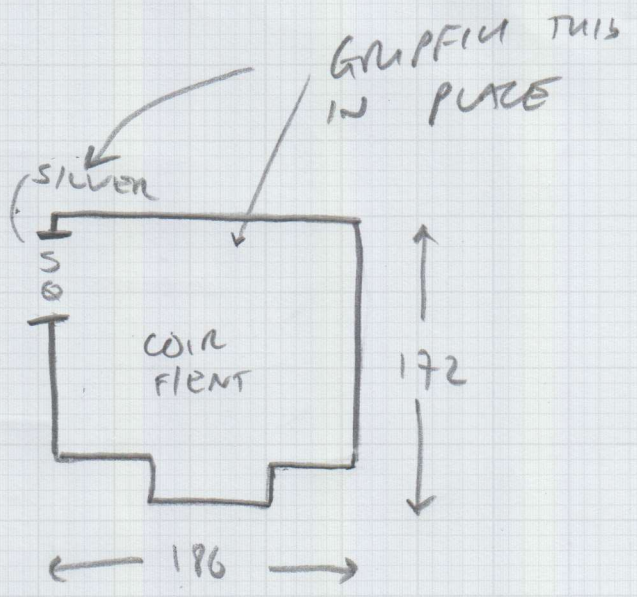 GRIPFILL THIS
IN PLACE
SILVER
S
Q
COIR
F/ENT
172
186